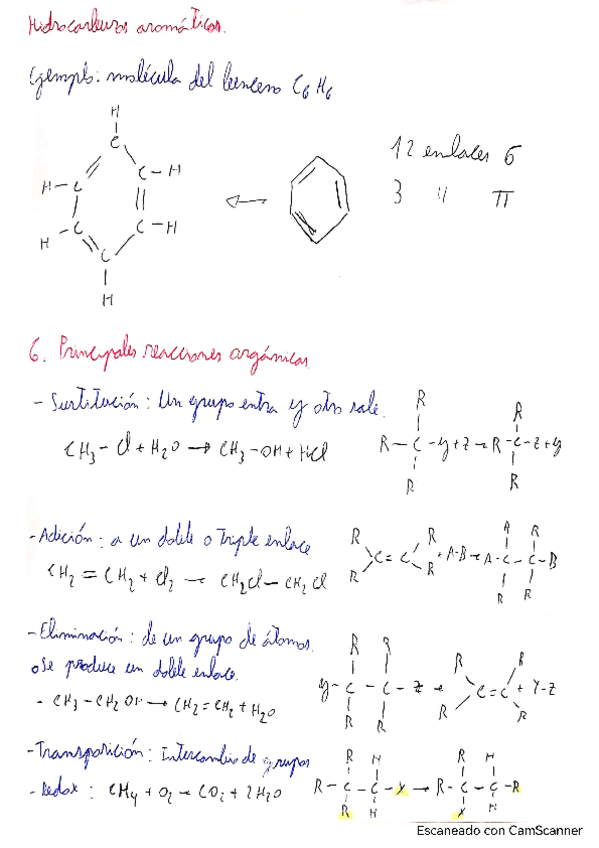 Hidrocarburos aromáticos.
Ejemplo: molécula del benceno C6H6
H
C
C-H
H-C
C-H
H C
C
H
12 enlaces σ
3 " π
6. Principales reacciones orgánicas
- Sustitución: Un grupo entra y otro sale.
CH3-Cl + H2O → CH3-OH + HCl
R R
R-C-y+z→R-C-z+y
R R
- Adición: a un doble o Triple enlace
CH2=CH2 + Cl2 → CH2Cl-CH2Cl
R R A R
C=C + A-B → A-C-C-B
R R R R
- Eliminación: de un grupo de átomos.
o Se produce un doble enlace.
- CH3-CH2OH → CH2=CH2 + H2O
R R R R
y-C-C-z → C=C + Y-Z
R R R R
- Transposición: Intercambio de grupos
- Redox: CH4 + O2 → CO2 + 2H2O
R H R H
R-C-C-X → R-C-C-R
R H X H
Escaneado con CamScanner